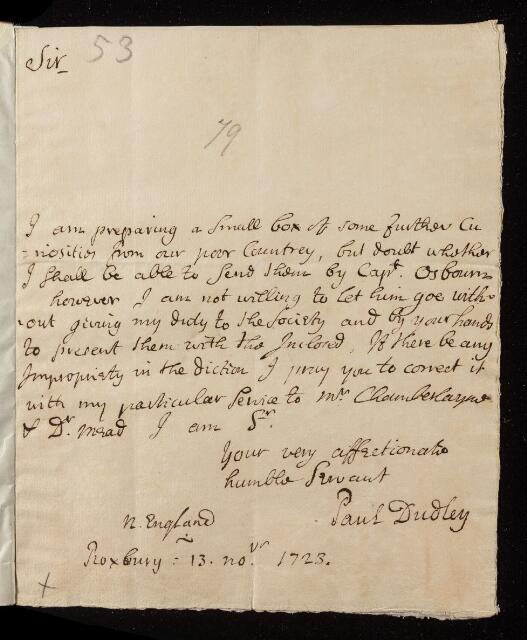 Sir 53
79
I am preparing a Small box of some further Cu
=riosities from our poor Countrey, but doubt whether
I shall be able to Send them by Capt. Osbourn
however I am not willing to let him goe with-
-out giving my duty to the Society and by your hands
to present them with the Inclosed, If there be any
Impropriety in the diction I pray you to correct it
with my particular Service to Mr Chamberlayne
& Dr. Mead I am Sr.
Your very affectionate
humble Servant
Paul Dudley
N. England
Roxbury = 13. Novr. 1723.
+